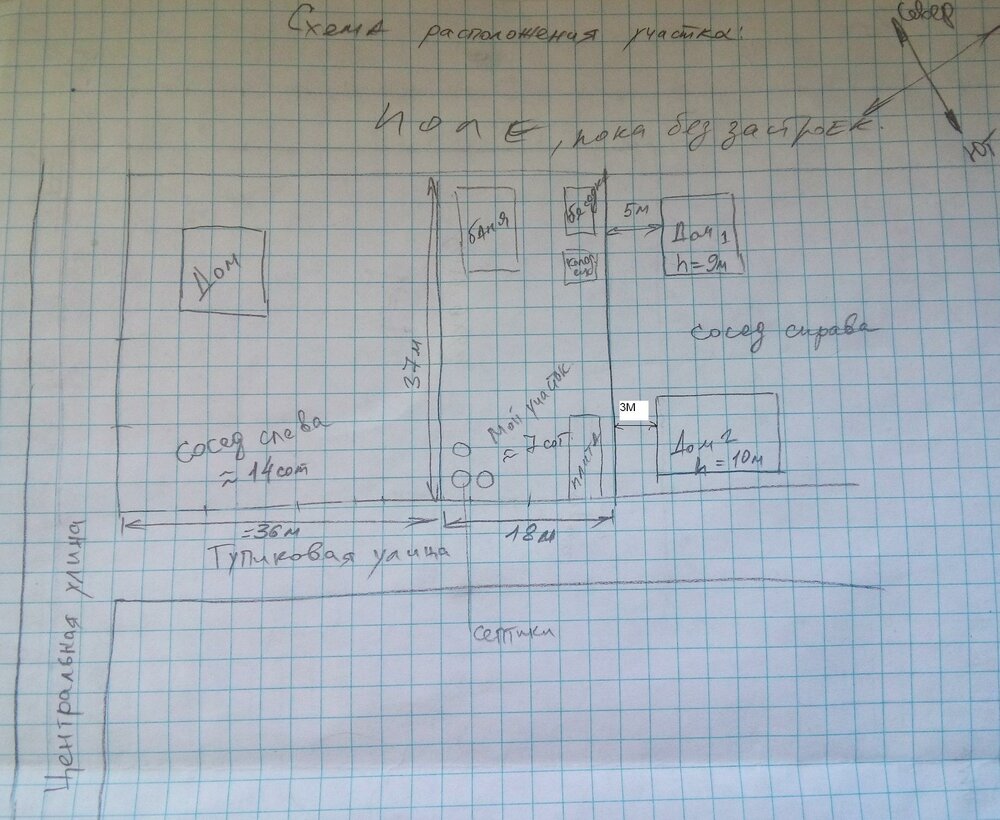 Схема расположения участка:
Север
Юг
Поле, пока без застроек.
Дом
баня
беседка
5м
Дом 1
h=9м
37м
сосед справа
Мой участок
≈ 7 сот
3М
Дом 2
h = 10м
сосед слева
≈ 14 сот
=36м
18м
Тупиковая улица
Центральная улица
септики